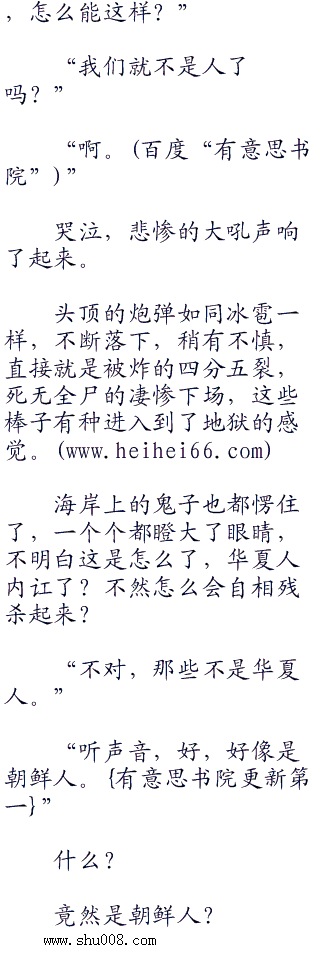 ，怎么能这样？”
“我们就不是人了
吗？”
“啊。(百度“有意思书
院”)”
哭泣，悲惨的大吼声响
了起来。
头顶的炮弹如同冰雹一
样，不断落下，稍有不慎，
直接就是被炸的四分五裂，
死无全尸的凄惨下场，这些
棒子有种进入到了地狱的感
觉。(www.heihei66.com)
海岸上的鬼子也都愣住
了，一个个都瞪大了眼睛，
不明白这是怎么了，华夏人
内讧了？不然怎么会自相残
杀起来？
“不对，那些不是华夏
人。”
“听声音，好，好像是
朝鲜人。{有意思书院更新第
一}”
什么？
竟然是朝鲜人？
www.shu008.com